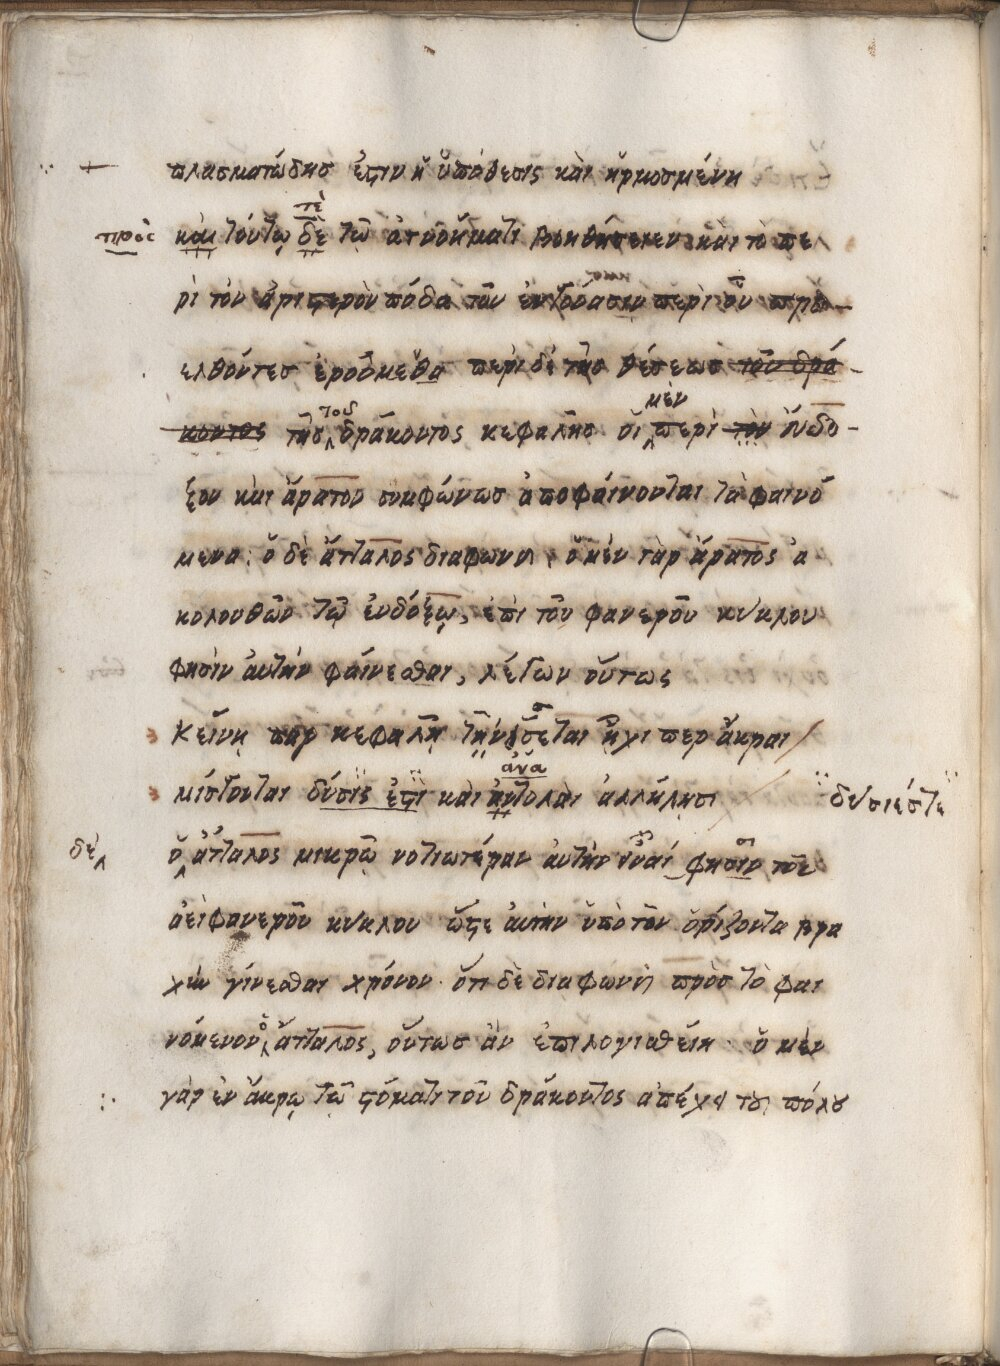 πλασματώδησ ἐστιν ἡ ὑπόθεσις καὶ ἡρμοσμένη
πρὸς καὶ τούτῳ δὲ πὲ τῷ ἀγνοήματι βοηθήσειεν καὶ τὸ πε
ρὶ τὸν ἀριστερὸν πόδα τοῦ ἐν γούασιν περὶ οὗ προ-
ελθόντεσ ἐροῦμεθα περὶ δὲ τῆσ θέσεωσ τοῦ δρά-
κοντος τῆσ τοῦ δράκοντος κεφαλῆσ οἱ μὲν περὶ τὸν ἔυδο-
ξον καὶ ἄρατον συμφώνωσ ἀποφαίνονται τὰ φαινό
μενα. ὁ δὲ ἄτταλος διαφωνεῖ. ὁ μὲν γὰρ ἄρατος ἀ
κολουθῶν τῷ ἐυδόξῳ, ἐπὶ τοῦ φανεροῦ κύκλου
φησὶν ἀυτὴν φάινεσθαι, λέγων οὕτως
κείνη που κεφαλὴ τῇ νίσσεται ᾗχι περ ἄκραι
μίσγονται δύσις ἐστὶ καὶ ἀντολὰι ἀνα ἀλλήλησι δύσιέστε
δὲ ὁ ἄτταλος μικρῷ νοτιωτέραν ἀυτὴν εἶναί φησιν τοῦ
ἀεὶ φανεροῦ κύκλου ὥστε ἀυτὴν ὑπὸ τὸν ὁρίζοντα βρα
χὺν γίνεσθαι χρόνον. ὅτι δὲ διαφωνεῖ πρὸσ τὸ φαι
νόμενον ὁ ἄτταλος, οὕτωσ ἂν ἐπιλογισθείη. ὁ μὲν
γὰρ ἐν ἄκρῳ τῷ στόματι τοῦ δράκοντος ἀπέχει τοῦ πόλου